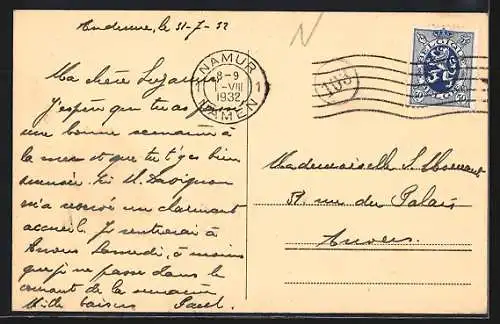 Andenne, le 31-7-32
Ma chère Suzanne
J'espère que tu as passé
une bonne semaine à
la mer et que tu t'es bien
amusée. Ici M. Davignon
m'a réservé un charmant
accueil. Je rentrerai à
Anvers Samedi, à moins
que je ne passe dans le
courant de la semaine
Mille baisers Paul.
NAMUR
8-9
1-VIII
1932
1 1
NAMEN
103
BELGIQUE
BELGIË
Mademoiselle S.
51 rue du Palais
Anvers.